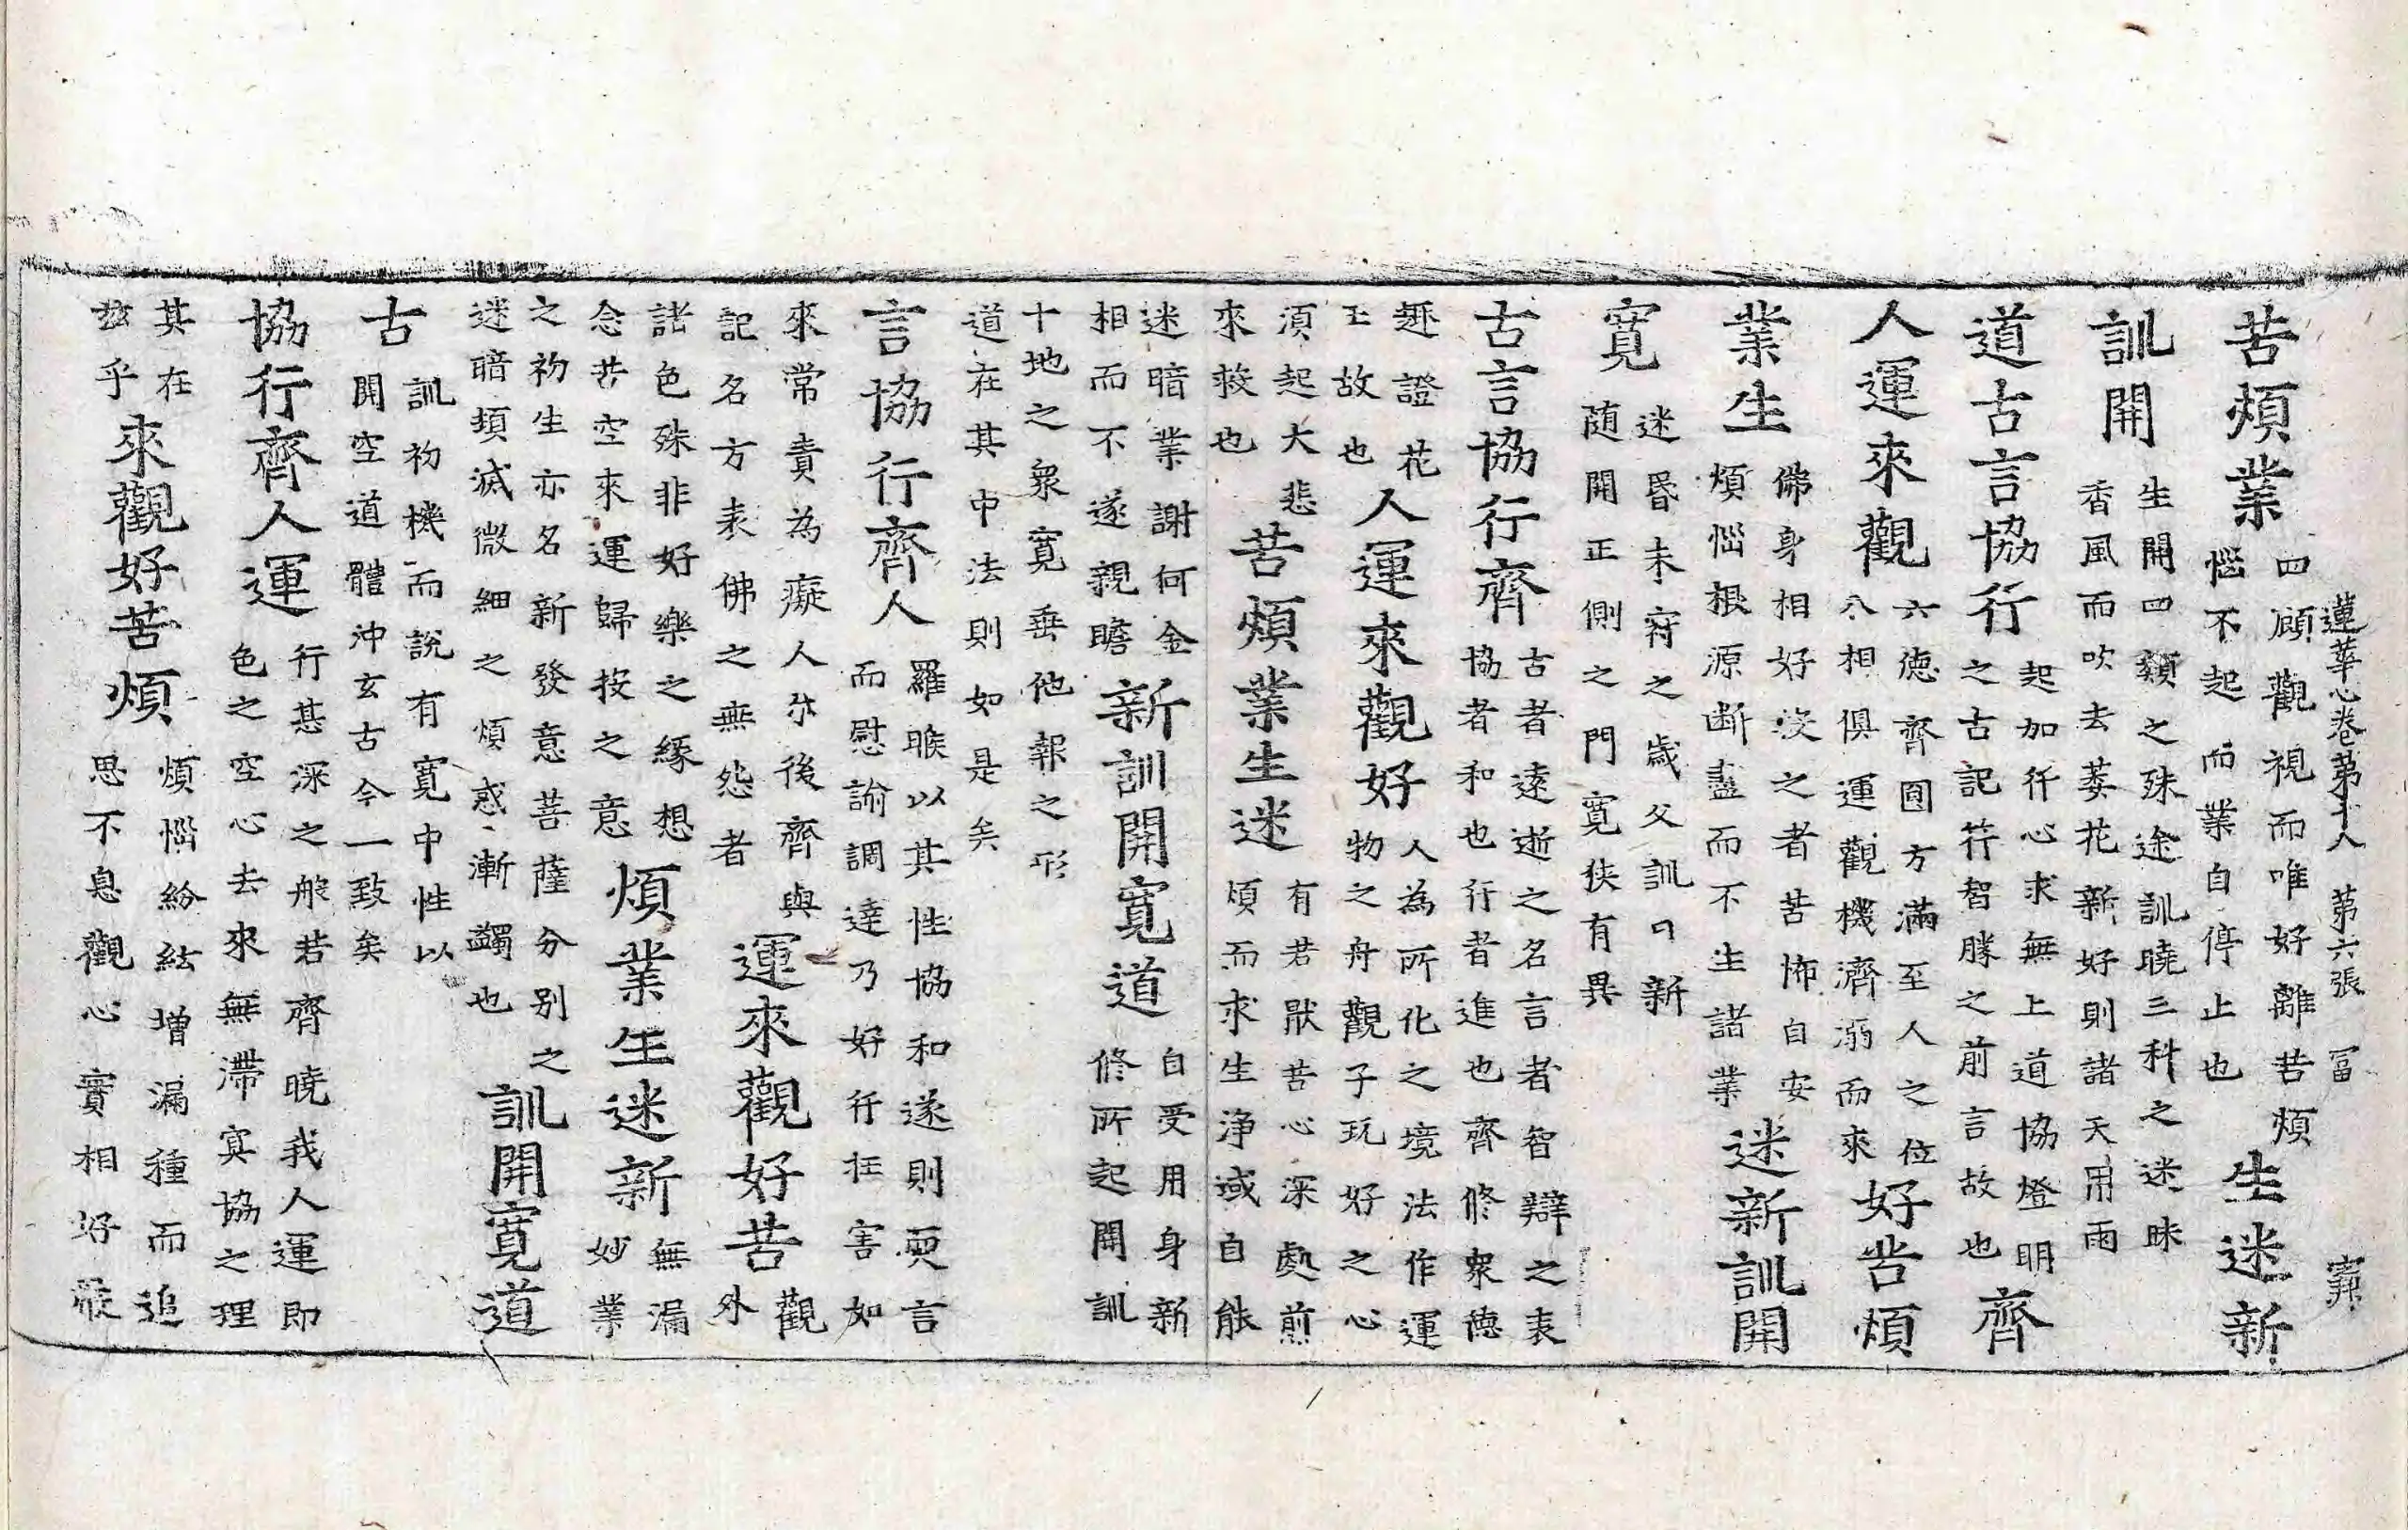 蓮華心卷第十八　第六張　冨　寉
苦煩業　四顧觀視而唯好離苦煩
惱不起而業自停止也　生迷新
訓開　生開四類之殊途訓曉三科之迷昧
香風而吹去萎花新好則諸天用雨
道古言協行　起加行心求無上道協燈明
之古記符智勝之前言故也　齊
人運來觀　六德齊圓方滿至人之位
八相俱運觀機濟溺而來　好苦煩
業生　佛身相好沒之者苦怖自安
煩惱根源断盡而不生諸業　迷新訓開
寛　迷昬未窮之歲父訓口新
随開正側之門寛狹有異
古言協行齊　古者遠逝之名言者智辯之表
協者和也行者進也齊修衆德
趣證花
玉故也　人運來觀好　人為所化之境法作運
物之舟觀子玩好之心
須起大悲
來救也　苦煩業生迷　有若猒苦心深處煎
煩而求生淨域自能
迷暗業謝何金
相而不遂親瞻　新訓開寛道　自受用身新
修所起開訓
十地之衆寛垂他報之形
道在其中法則如是矣
言協行齊人　羅睺以其性協和遂則耎言
而慰諭調達乃好行抂害如
來常責為癡人尒後齊與
記名方表佛之無怨者　運來觀好苦　觀
外
諸色殊非好樂之緣想
念苦空來運歸按之意　煩業生迷新　無漏
妙業
之初生亦名新發意菩薩分別之
迷暗頓滅微細之煩惑漸蠲也　訓開寛道
古　訓初機而說有寛中性以
開空道體沖玄古今一致矣
協行齊人運　行甚深之般若齊曉我人運即
色之空心去來無滯寞協之理
其在
茲乎　來觀好苦煩　煩惱紛紜增漏種而追
思不息觀心實相好嚴